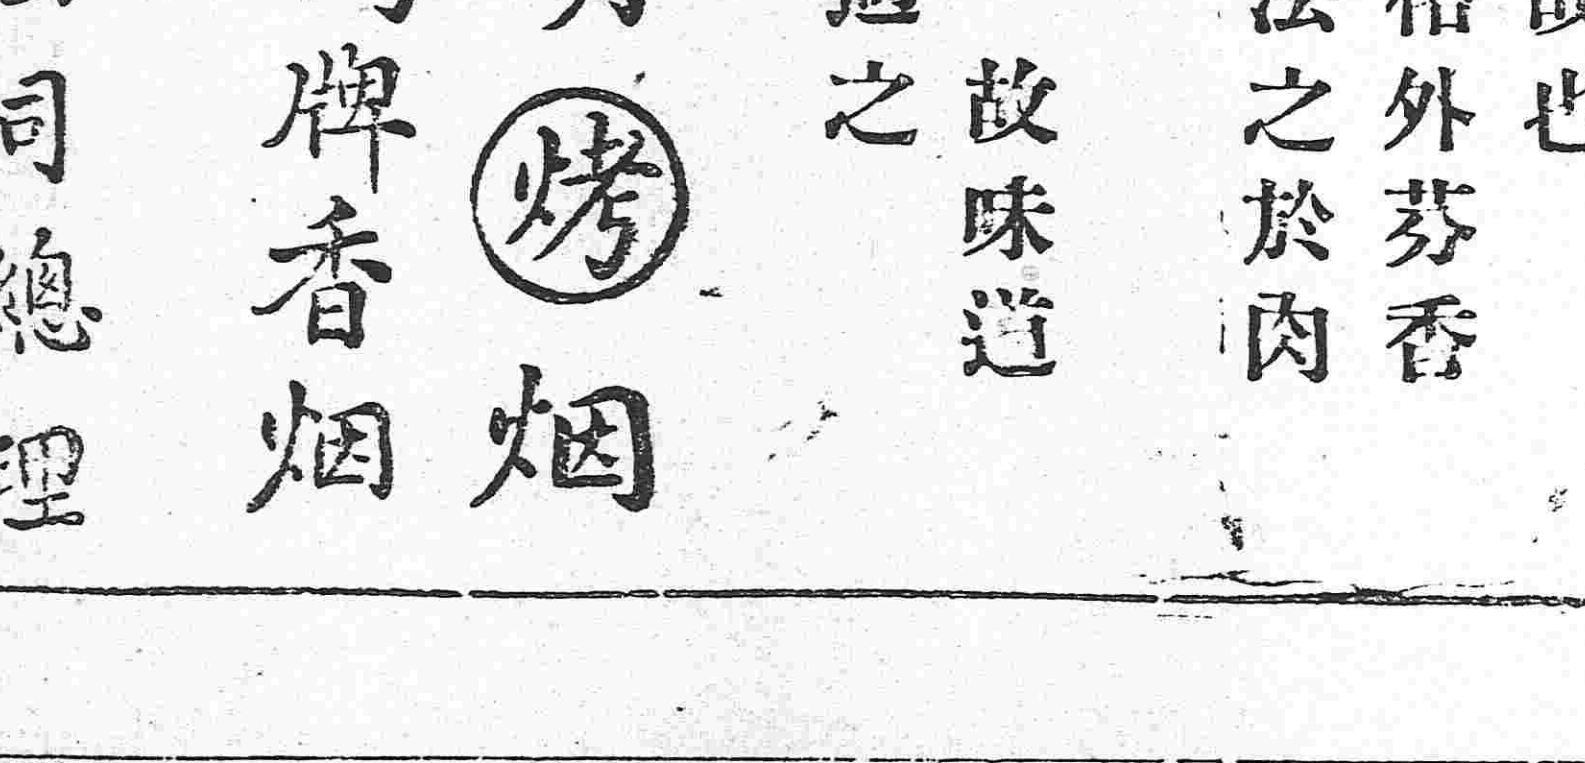 也
格外芬香
法之於肉
故味道
之
烤烟
牌香烟
司總理